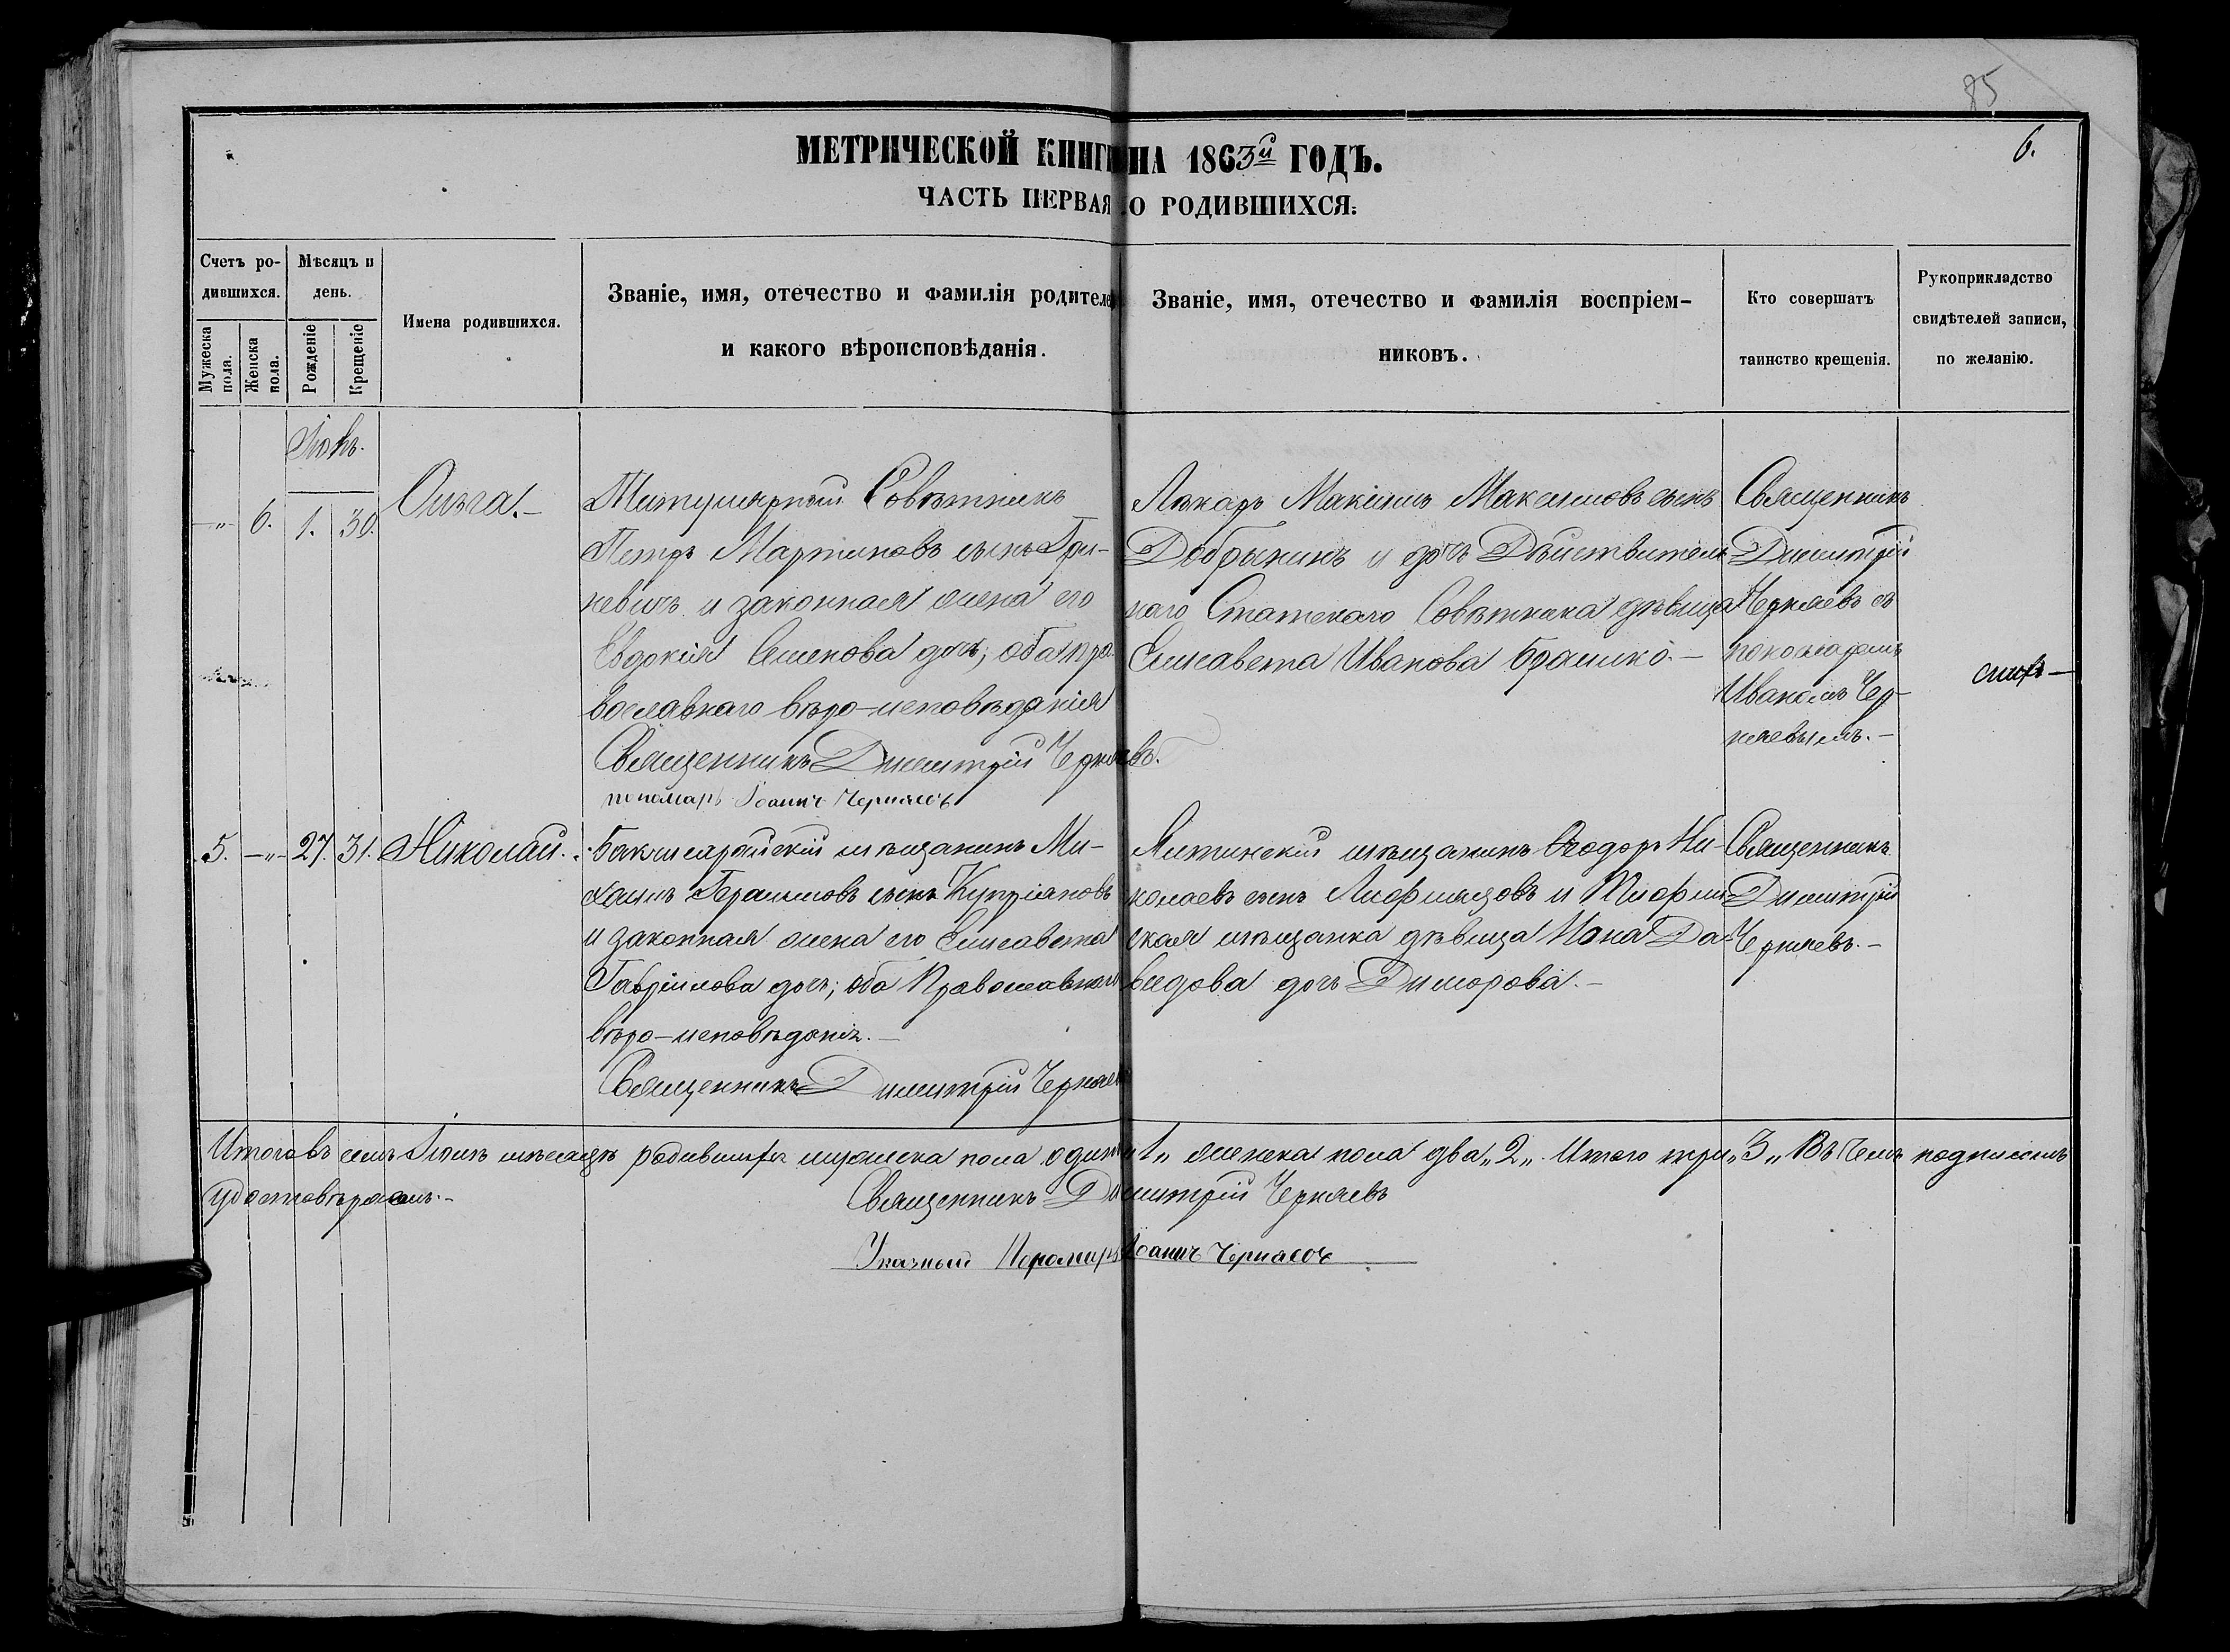 85
6.
МЕТРИЧЕСКОЙ КНИГИ НА 1863й ГОДЪ.
ЧАСТЬ ПЕРВАЯ О РОДИВШИХСЯ:
Счетъ ро-
дившихся.
Мужеска пола.
Женска пола.
Мѣсяцъ и
день.
Рожденіе
Крещеніе
Имена родившихся.
Званіе, имя, отечество и фамилія родителей
и какого вѣроисповѣданія.
Званіе, имя, отечество и фамилія воспріем-
никовъ.
Кто совершатъ
таинство крещенія.
Рукоприкладство
свидѣтелей записи,
по желанію.
-"- 6. 1. 30.
Ольга.-
Титулярный Совѣтникъ
Петръ Мартиновъ сынъ Гри-
невичъ и законная жена его
Евдокія Семенова дочь; оба пра-
вославнаго вѣро-исповѣданія
Священникъ Димитрій Черняевъ.
пономарь Іоаннъ Черняевъ
Лѣкарь Максимъ Максимовъ сынъ
Добрынинъ и дочь Дѣйствитель
наго Статскаго Совѣтника дѣвица
Елисавета Иванова Брашко.-
Священникъ
Димитрій
Черняевъ съ
пономаремъ
Иваномъ Чер-
няевымъ.-
5. -"- 27. 31. Николай.
Бахчисарайскій мѣщанинъ Ми-
хаилъ Герасимовъ сынъ Купріяновъ
и законная жена его Елисавета
Гавріилова дочь; оба Православнаго
вѣро-исповѣданія.-
Священникъ Димитрій Черняевъ
Ялтинскій мѣщанинъ Ѳеодоръ Ни-
колаевъ сынъ и
ская мѣщанка дѣвица Да-
видова дочь
Священникъ
Димитрій
Черняевъ.-
Итого въ семъ мѣсяцѣ родившихся мужеска пола одинъ „1„ женска пола два „2„. Итого три „3„ Въ чемъ подписомъ
удостовѣряемъ.-
Священникъ Димитрій Черняевъ
Указный Пономарь Іоаннъ Черняевъ